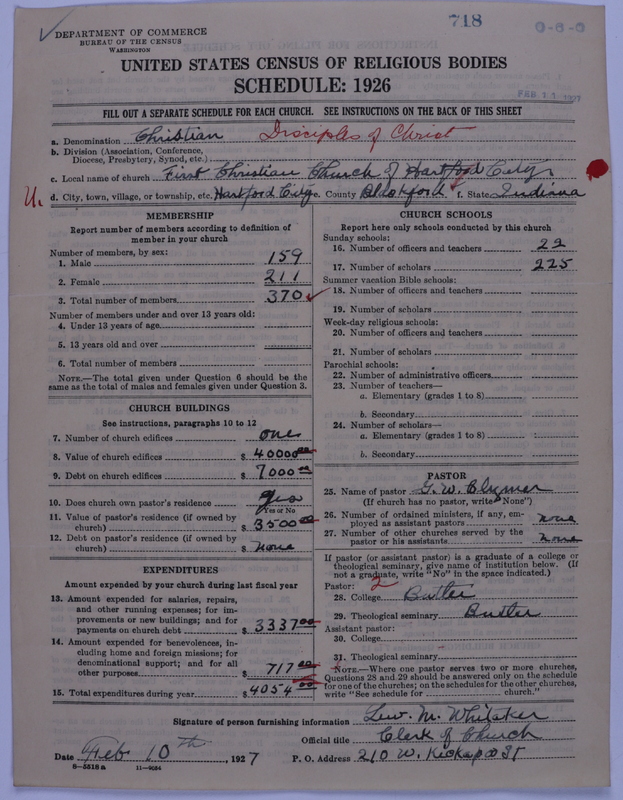 718
0-6-0
DEPARTMENT OF COMMERCE
BUREAU OF THE CENSUS
WASHINGTON
UNITED STATES CENSUS OF RELIGIOUS BODIES
SCHEDULE: 1926
FEB 11 1927
FILL OUT A SEPARATE SCHEDULE FOR EACH CHURCH. SEE INSTRUCTIONS ON THE BACK OF THIS SHEET
a. Denomination Christian Disciples of Christ
b. Division (Association, Conference,
Diocese, Presbytery, Synod, etc.)
c. Local name of church First Christian Church of Hartford City
U. d. City, town, village, or township, etc. Hartford City e. County Blackford f. State Indiana
MEMBERSHIP
Report number of members according to definition of
member in your church
Number of members, by sex:
1. Male 159
2. Female 211
3. Total number of members 370
Number of members under and over 13 years old:
4. Under 13 years of age
5. 13 years old and over
6. Total number of members
NOTE.—The total given under Question 6 should be the
same as the total of males and females given under Question 3.
CHURCH BUILDINGS
See instructions, paragraphs 10 to 12
7. Number of church edifices one
8. Value of church edifices $ 40000 00
9. Debt on church edifices $ 7000 00
10. Does church own pastor's residence yes
Yes or No
11. Value of pastor's residence (if owned by
church) $ 3500 00
12. Debt on pastor's residence (if owned by
church) $ none
EXPENDITURES
Amount expended by your church during last fiscal year
13. Amount expended for salaries, repairs,
and other running expenses; for im-
provements or new buildings; and for
payments on church debt $ 3337 00
14. Amount expended for benevolences, in-
cluding home and foreign missions; for
denominational support; and for all
other purposes $ 717 00
15. Total expenditures during year $ 4054 00
CHURCH SCHOOLS
Report here only schools conducted by this church
Sunday schools:
16. Number of officers and teachers 22
17. Number of scholars 225
Summer vacation Bible schools:
18. Number of officers and teachers
19. Number of scholars
Week-day religious schools:
20. Number of officers and teachers
21. Number of scholars
Parochial schools:
22. Number of administrative officers
23. Number of teachers—
a. Elementary (grades 1 to 8)
b. Secondary
24. Number of scholars—
a. Elementary (grades 1 to 8)
b. Secondary
PASTOR
25. Name of pastor G. W. Clymer
(If church has no pastor, write "None")
26. Number of ordained ministers, if any, em-
ployed as assistant pastors none
27. Number of other churches served by the
pastor or his assistants none
If pastor (or assistant pastor) is a graduate of a college or
theological seminary, give name of institution below. (If
not a graduate, write "No" in the space indicated.)
Pastor: 2
28. College Butler
29. Theological seminary Butler
Assistant pastor:
30. College
31. Theological seminary
NOTE.—Where one pastor serves two or more churches,
Questions 28 and 29 should be answered only on the schedule
for one of the churches; on the schedules for the other churches,
write "See schedule for church."
Signature of person furnishing information Lew. M. Whitaker
Official title Clerk of Church
Date Feb 10th, 1927 P. O. Address 210 W. Kickapoo St
8-5518 a 11-9084